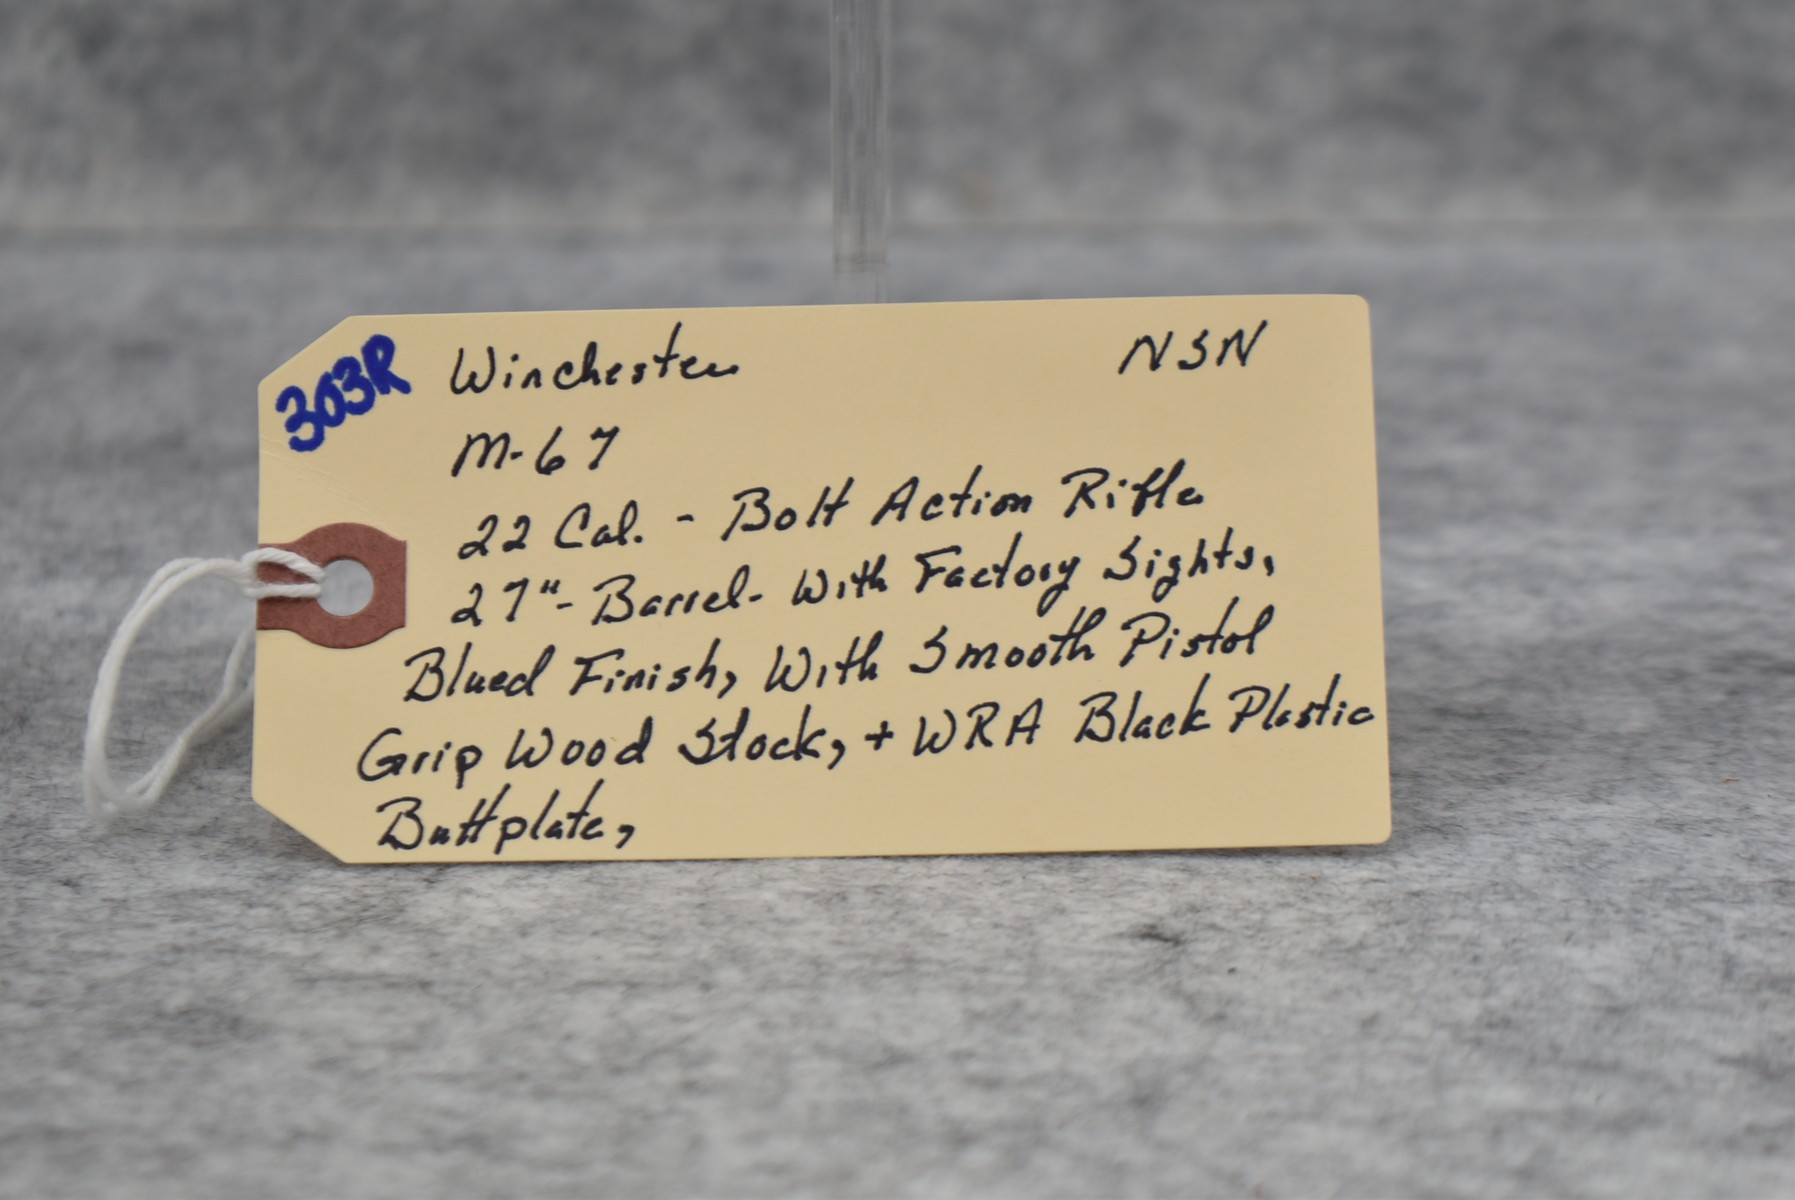 303R Winchester NSN
M-67
22 Cal. - Bolt Action Rifle
27"- Barrel- With Factory Sights,
Blued Finish, With Smooth Pistol
Grip Wood Stock, + WRA Black Plastic
Buttplate,